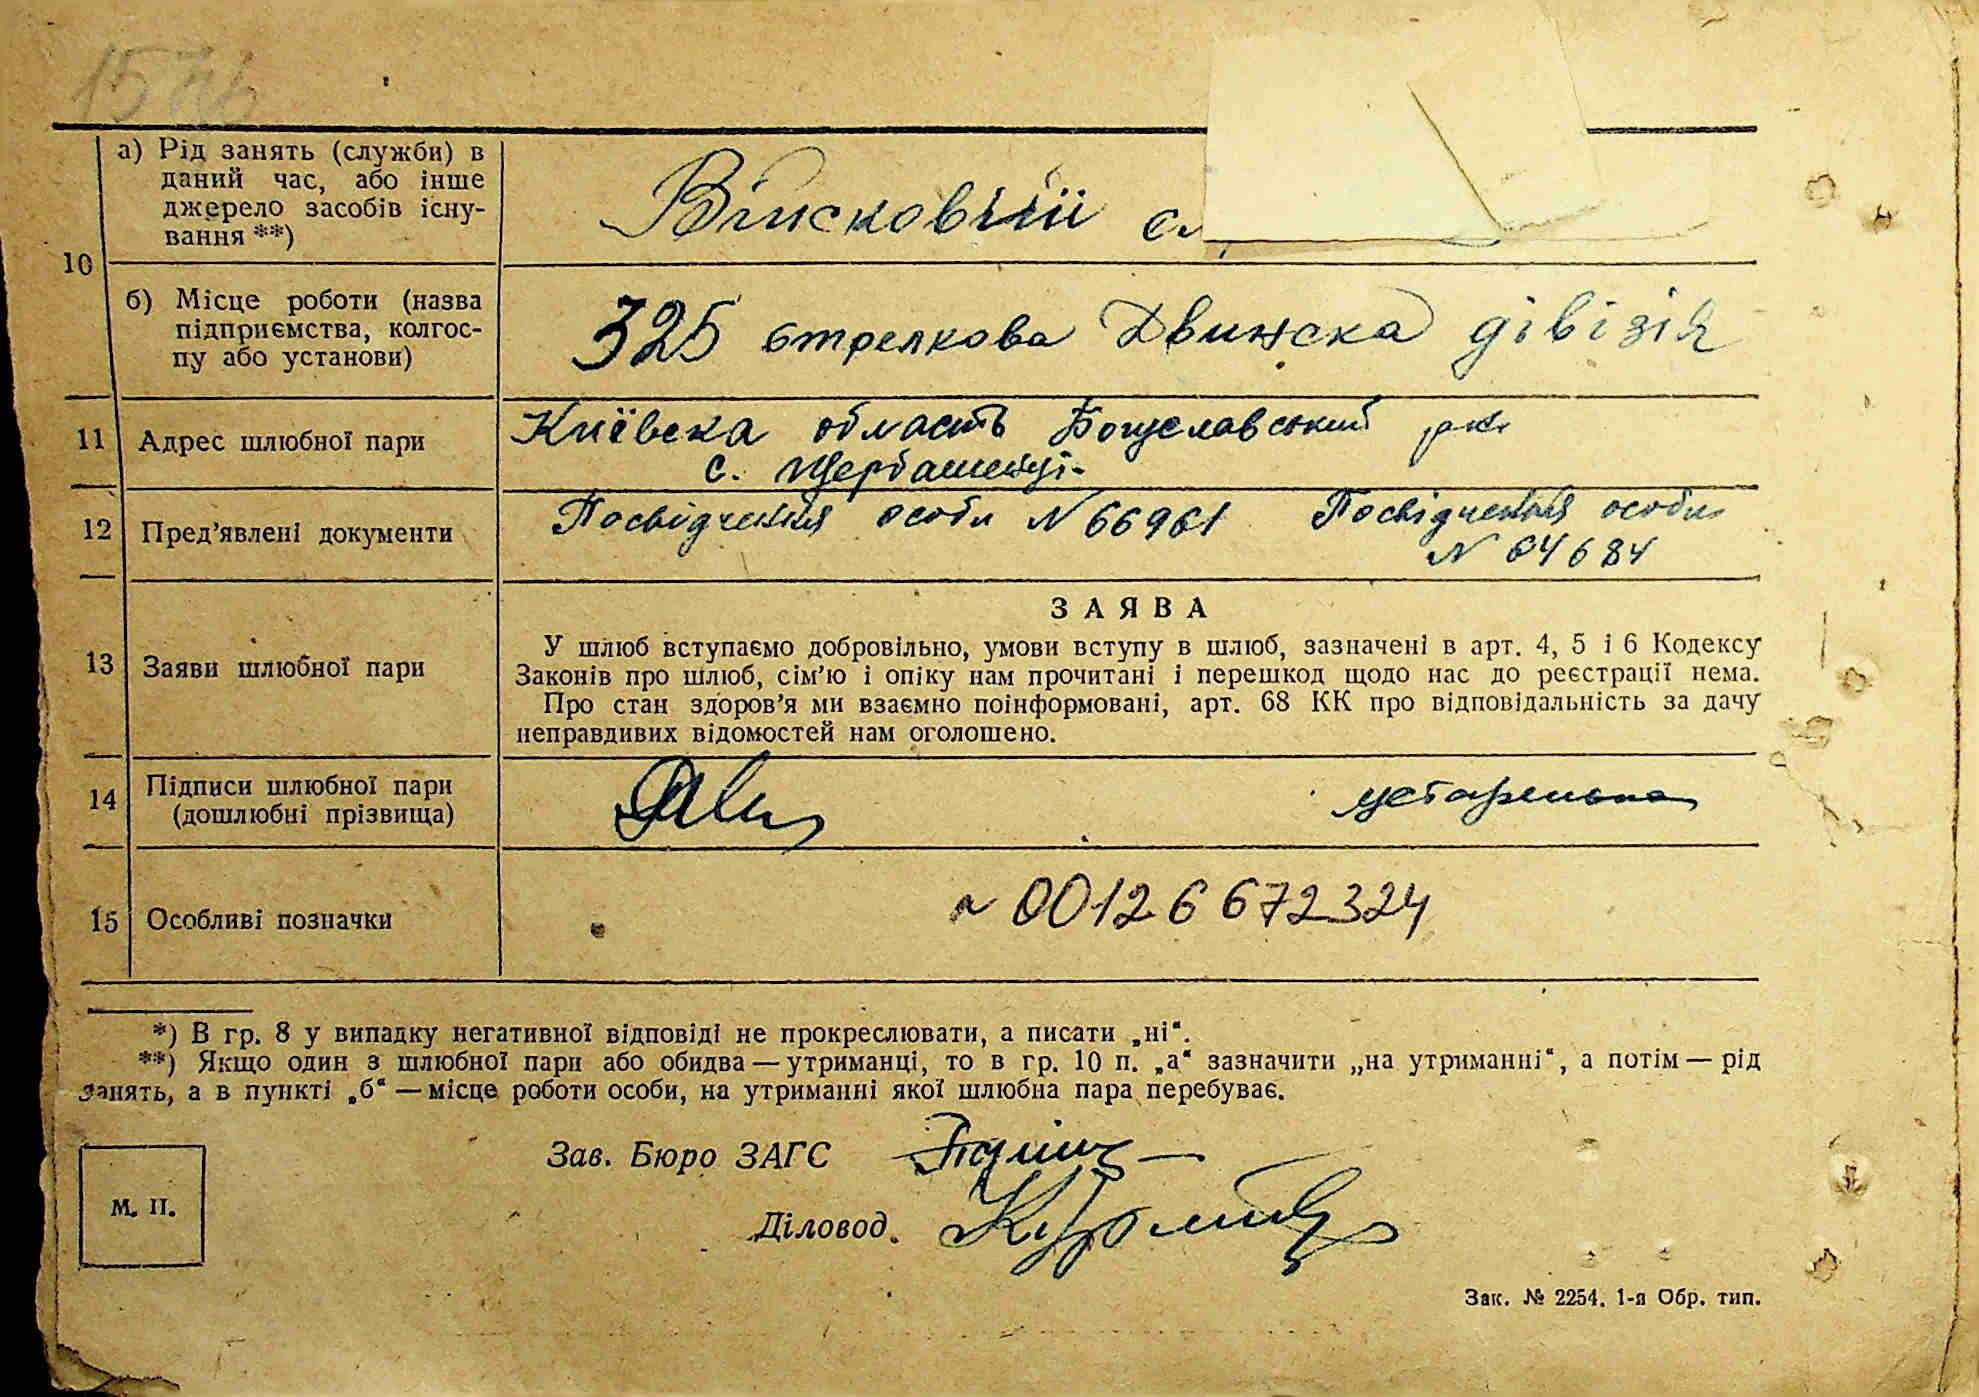 а) Рід занять (служби) в
даний час, або інше
джерело засобів існу-
вання **)
Військовий
10
б) Місце роботи (назва
підприємства, колгос-
пу або установи)
325 стрелкова Двинска дівізія
11 Адрес шлюбної пари
Київска область Богуславський р-н
с. Щербашенці
12 Пред'явлені документи
Посвідчення особи N 66961 Посвідчення особи
N 64684
ЗАЯВА
13 Заяви шлюбної пари
У шлюб вступаємо добровільно, умови вступу в шлюб, зазначені в арт. 4, 5 і 6 Кодексу
Законів про шлюб, сім'ю і опіку нам прочитані і перешкод щодо нас до реєстрації нема.
Про стан здоров'я ми взаємно поінформовані, арт. 68 КК про відповідальність за дачу
неправдивих відомостей нам оголошено.
14 Підписи шлюбної пари
(дошлюбні прізвища)
15 Особливі позначки
N 00126672324
*) В гр. 8 у випадку негативної відповіді не прокреслювати, а писати „ні“.
**) Якщо один з шлюбної пари або обидва — утриманці, то в гр. 10 п. „а“ зазначити „на утриманні“, а потім — рід
занять, а в пункті „б“ — місце роботи особи, на утриманні якої шлюбна пара перебуває.
Зав. Бюро ЗАГС
М. П.
Діловод
Зак. № 2254. 1-я Обр. тип.